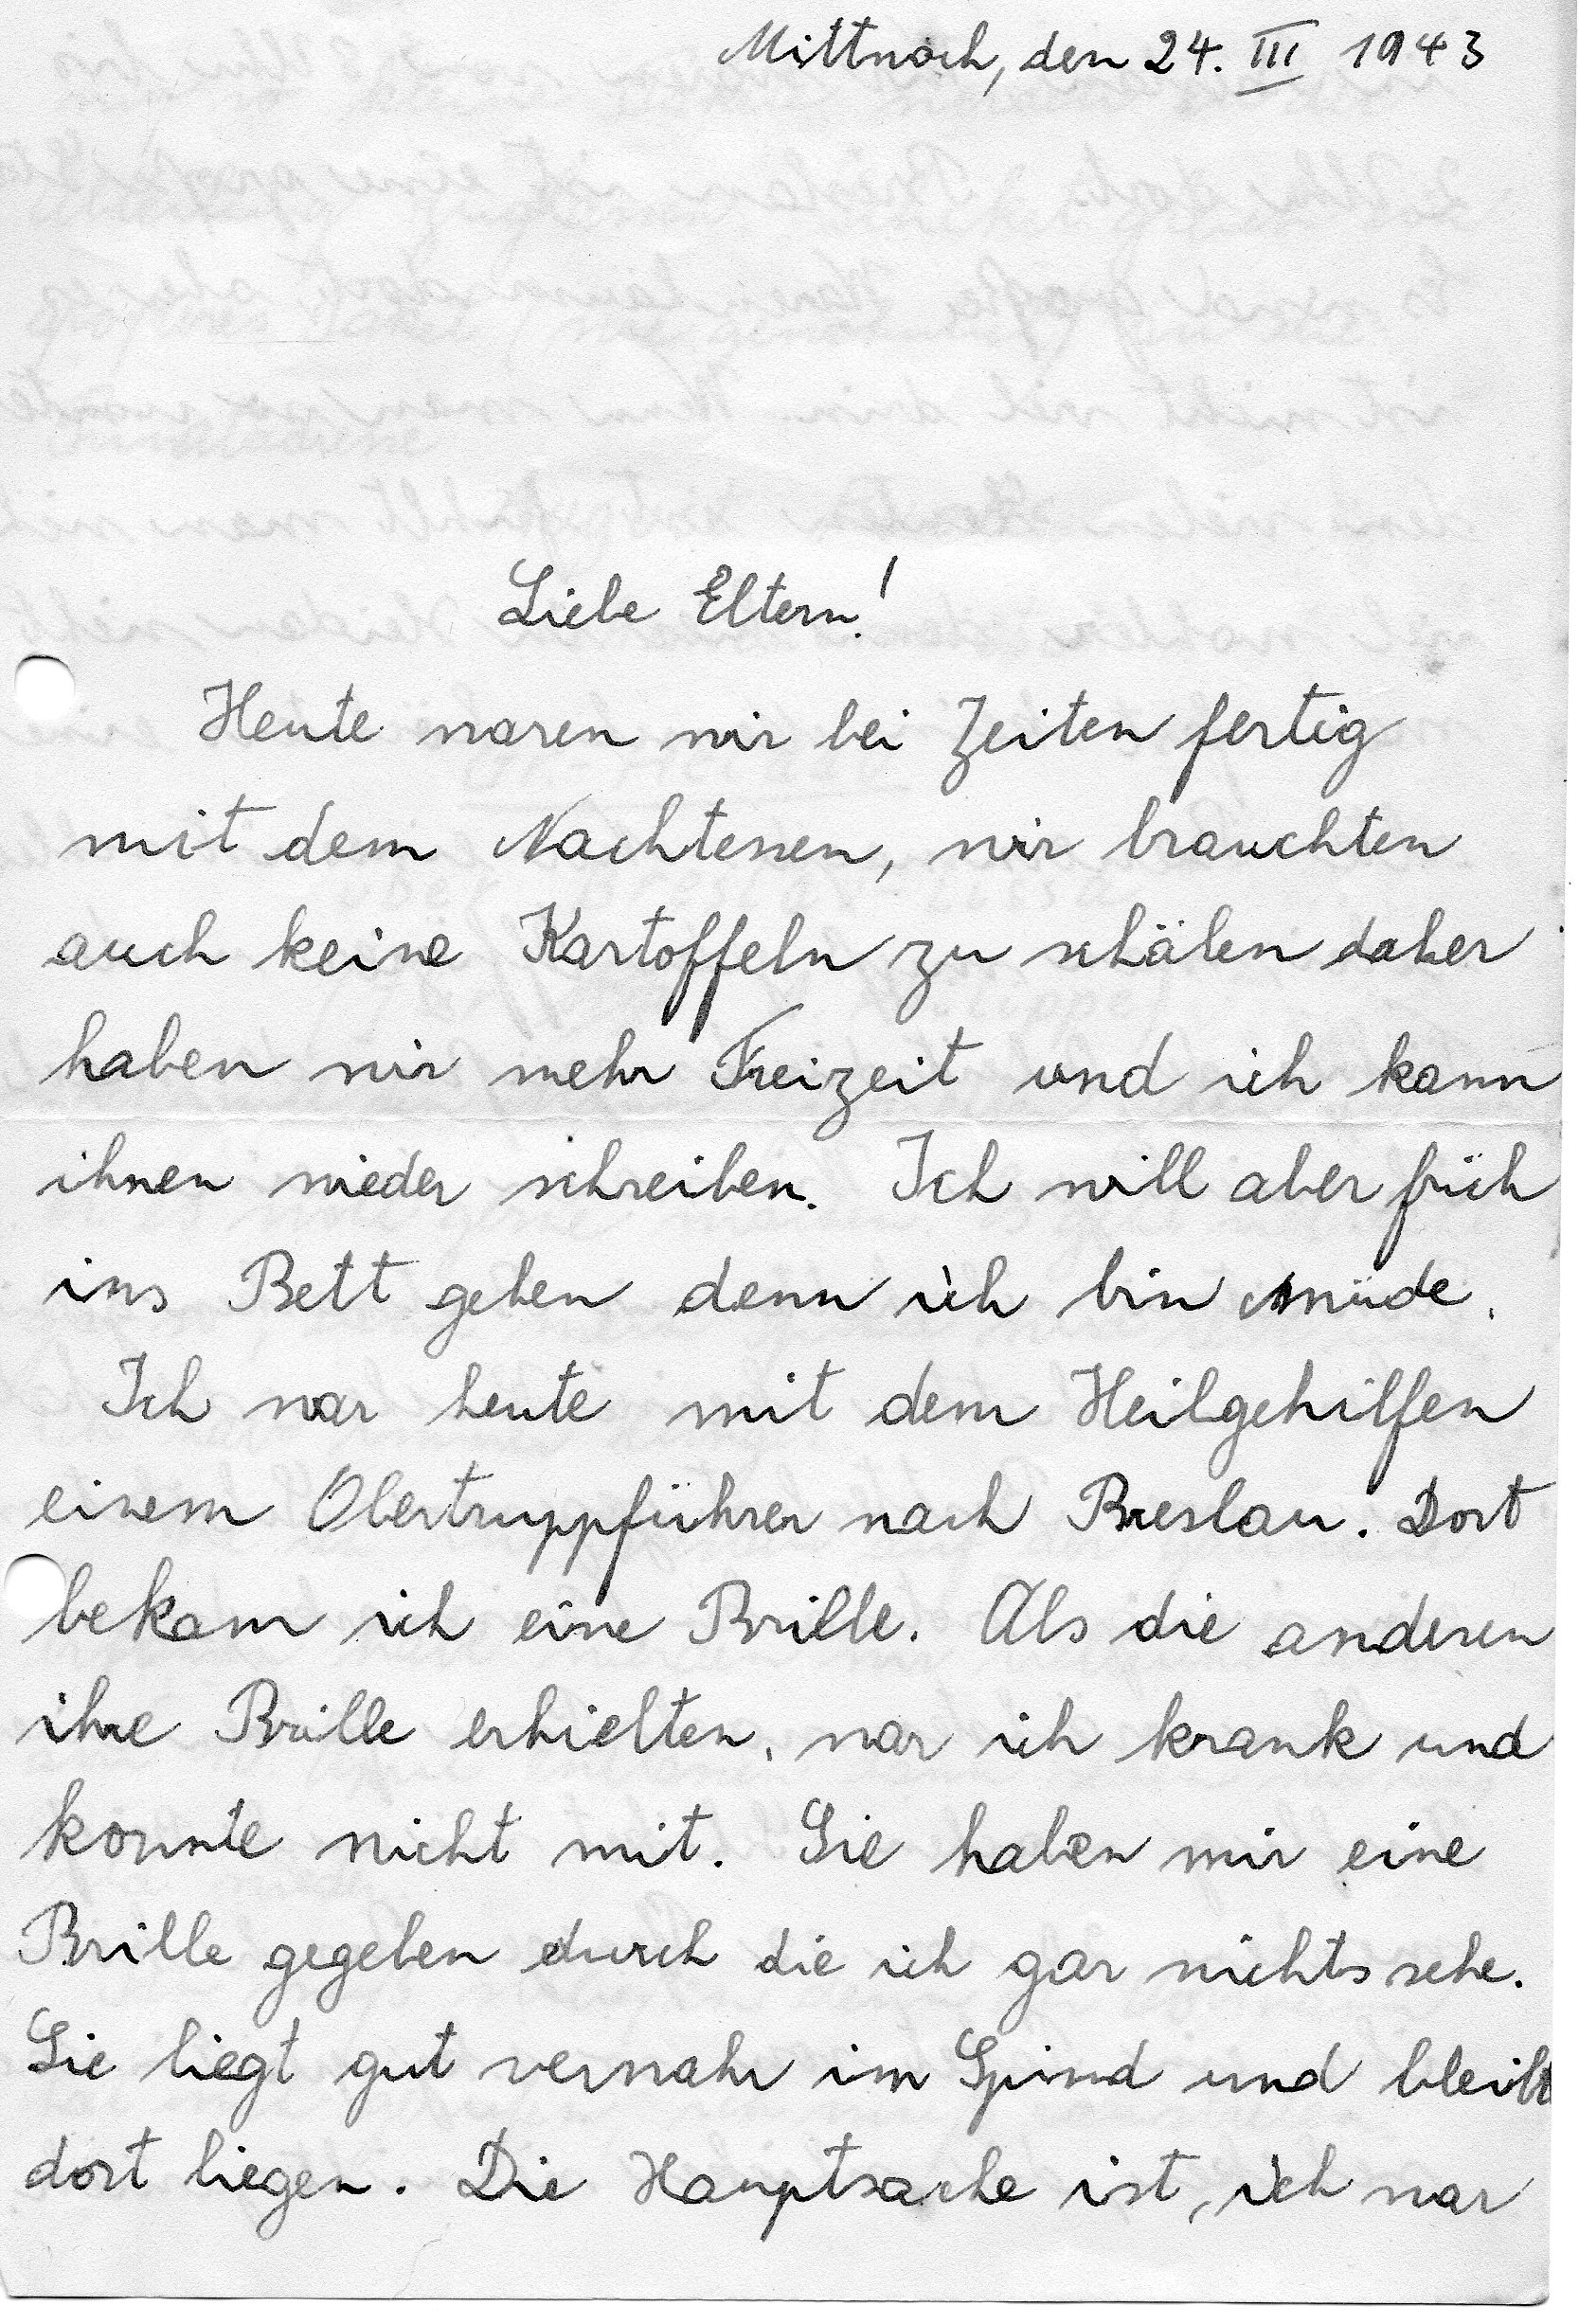 Mittwoch, den 24. III 1943
Liebe Eltern!
Heute waren wir bei Zeiten fertig
mit dem Nachtessen, wir brauchten
auch keine Kartoffeln zu schälen daher
haben wir mehr Freizeit und ich kann
ihnen wieder schreiben. Ich will aber früh
ins Bett gehen denn ich bin müde.
Ich war heute mit dem Heilgehilfen
einem Obertruppführer nach Breslau. Dort
bekam ich eine Brille. Als die anderen
ihre Brille erhielten, war ich krank und
konnte nicht mit. Sie haben mir eine
Brille gegeben durch die ich gar nichts sehe.
Sie liegt gut verwahr im Spind und bleibt
dort liegen. Die Hauptsache ist, ich war